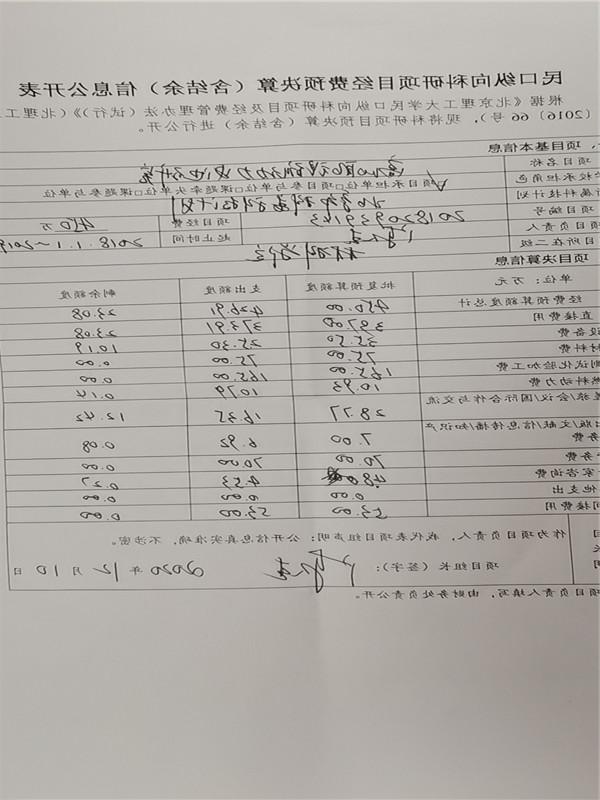 民口纵向科研项目经费预决算（含结余）信息公开表
根据《北京理工大学民口纵向科研项目及经费管理办法（试行）》（北理工
〔2016〕66号），现将科研项目预决算（含结余）进行公开。
项目基本信息
项目名称
校承担角色 √项目承担单位□项目参与单位□课题牵头单位□课题参与单位
所属科技计划
项目编号 20182093913
项目负责人 项目经费 450万
项目所在二级 机电学院 起止时间 2018.1.1~2019
项目决算信息
单位：万元 批复预算额度 支出额度 剩余额度
经费预算额度总计 450.00 426.91 23.08
直接费用 397.00 373.91 23.08
设备费 35.50 25.30 10.19
材料费 75.00 75.00 0.00
测试化验加工费 165.00 165.00 0.00
燃料动力费 10.93 10.79 0.14
差旅/会议/国际合作与交流 28.77 16.35 12.42
出版/文献/信息传播/知识产 7.00 6.92 0.08
务费
劳务费 70.00 70.00 0.00
专家咨询费 4.80 4.53 0.27
其他支出 0.00 0.00 0.00
间接费用 53.00 53.00 0.00
作为项目负责人，我代表项目组声明：公开信息真实准确，不涉密。
项目组长（签字）： 2020年12月10日
项目负责人填写，由财务处负责公开。